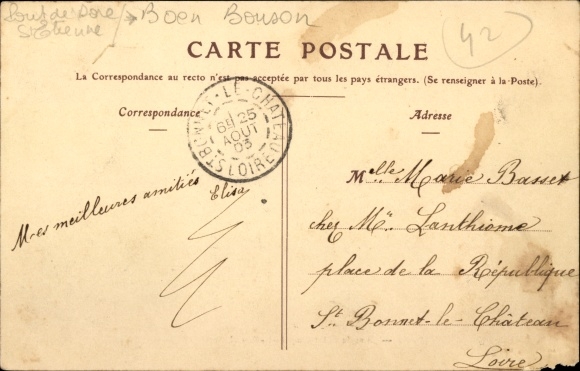 Pont de Dore → Boen Bonson
St Etienne
42
CARTE POSTALE
La Correspondance au recto n'est pas acceptée par tous les pays étrangers. (Se renseigner à la Poste).
Correspondance
Adresse
ST BONNET-LE-CHATEAU
6E 25
AOUT
03
LOIRE
Mes meilleures amitiés
Elisa
Melle Marie Basset
chez Mr Lanthiome
place de la République
St Bonnet-le-Château
Loire